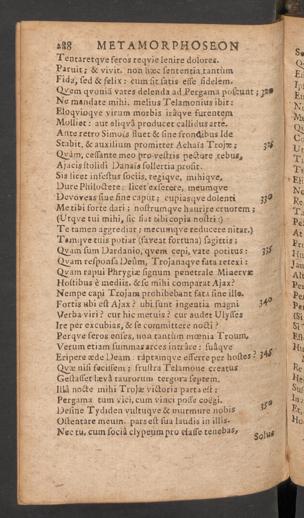 288 METAMORPHOSEON
Tentaretqve feros reqvie lenire dolores.
Patuit; & vivit. non hæc sententia tantum
Fida, sed & felix: cum sit satis esse fidelem.
Qvem qvoniã vates delenda ad Pergama poscunt; 320
Ne mandate mihi. melius Telamonius ibit:
Eloqvioqve virum morbis irâqve furentem
Molliet: aut aliqvâ producet callidus arte.
Ante retro Simois fluet & sine frondibus Ide
Stabit, & auxilium promittet Achaïa Trojæ; 325
Qvàm, cessante meo pro vestris pectore rebus,
Ajacis stolidi Danais sollertia prosit.
Sis licet infestus sociis, regiqve, mihiqve,
Dure Philoctete: licet exsecrere, meumqve
Devoveas sine fine caput; cupiasqve dolenti 330
Me tibi forte dari; nostrumqve haurire cruorem;
(Utqve tui mihi, sic fiat tibi copia nostri:)
Te tamen aggrediar; mecumqve reducere nitar.)
Tamqve tuis potiar (faveat fortuna) sagittis;
Qvam sum Dardanio, qvem cepi, vate potitus: 335
Qvam responsa Deûm, Trojanaqve fata retexi:
Qvam rapui Phrygiæ signum penetrale Minervæ
Hostibus è mediis. & se mihi comparat Ajax?
Nempe capi Trojam prohibebant fata sine illo.
Fortis ubi est Ajax? ubi sunt ingentia magni 340
Verba viri? cur hîc metuis? cur audet Ulysses
Ire per excubias, & se committere nocti?
Perqve feros enses, non tantùm mœnia Troum,
Verum etiam summas arces intrare: suâqve
Eripere æde Deam: raptamqve efferre per hostes? 345
Qvæ nisi fecissem; frustra Telamone creatus
Gestasset lævâ taurorum tergora septem.
Illâ nocte mihi Trojæ victoria parta est;
Pergama tum vici, cum vinci posse coëgi.
Desine Tydiden vultuqve & murmure nobis 350
Ostentare meum. pars est sua laudis in illis.
Nec tu, cum sociâ clypeum pro classe tenebas,
Solus